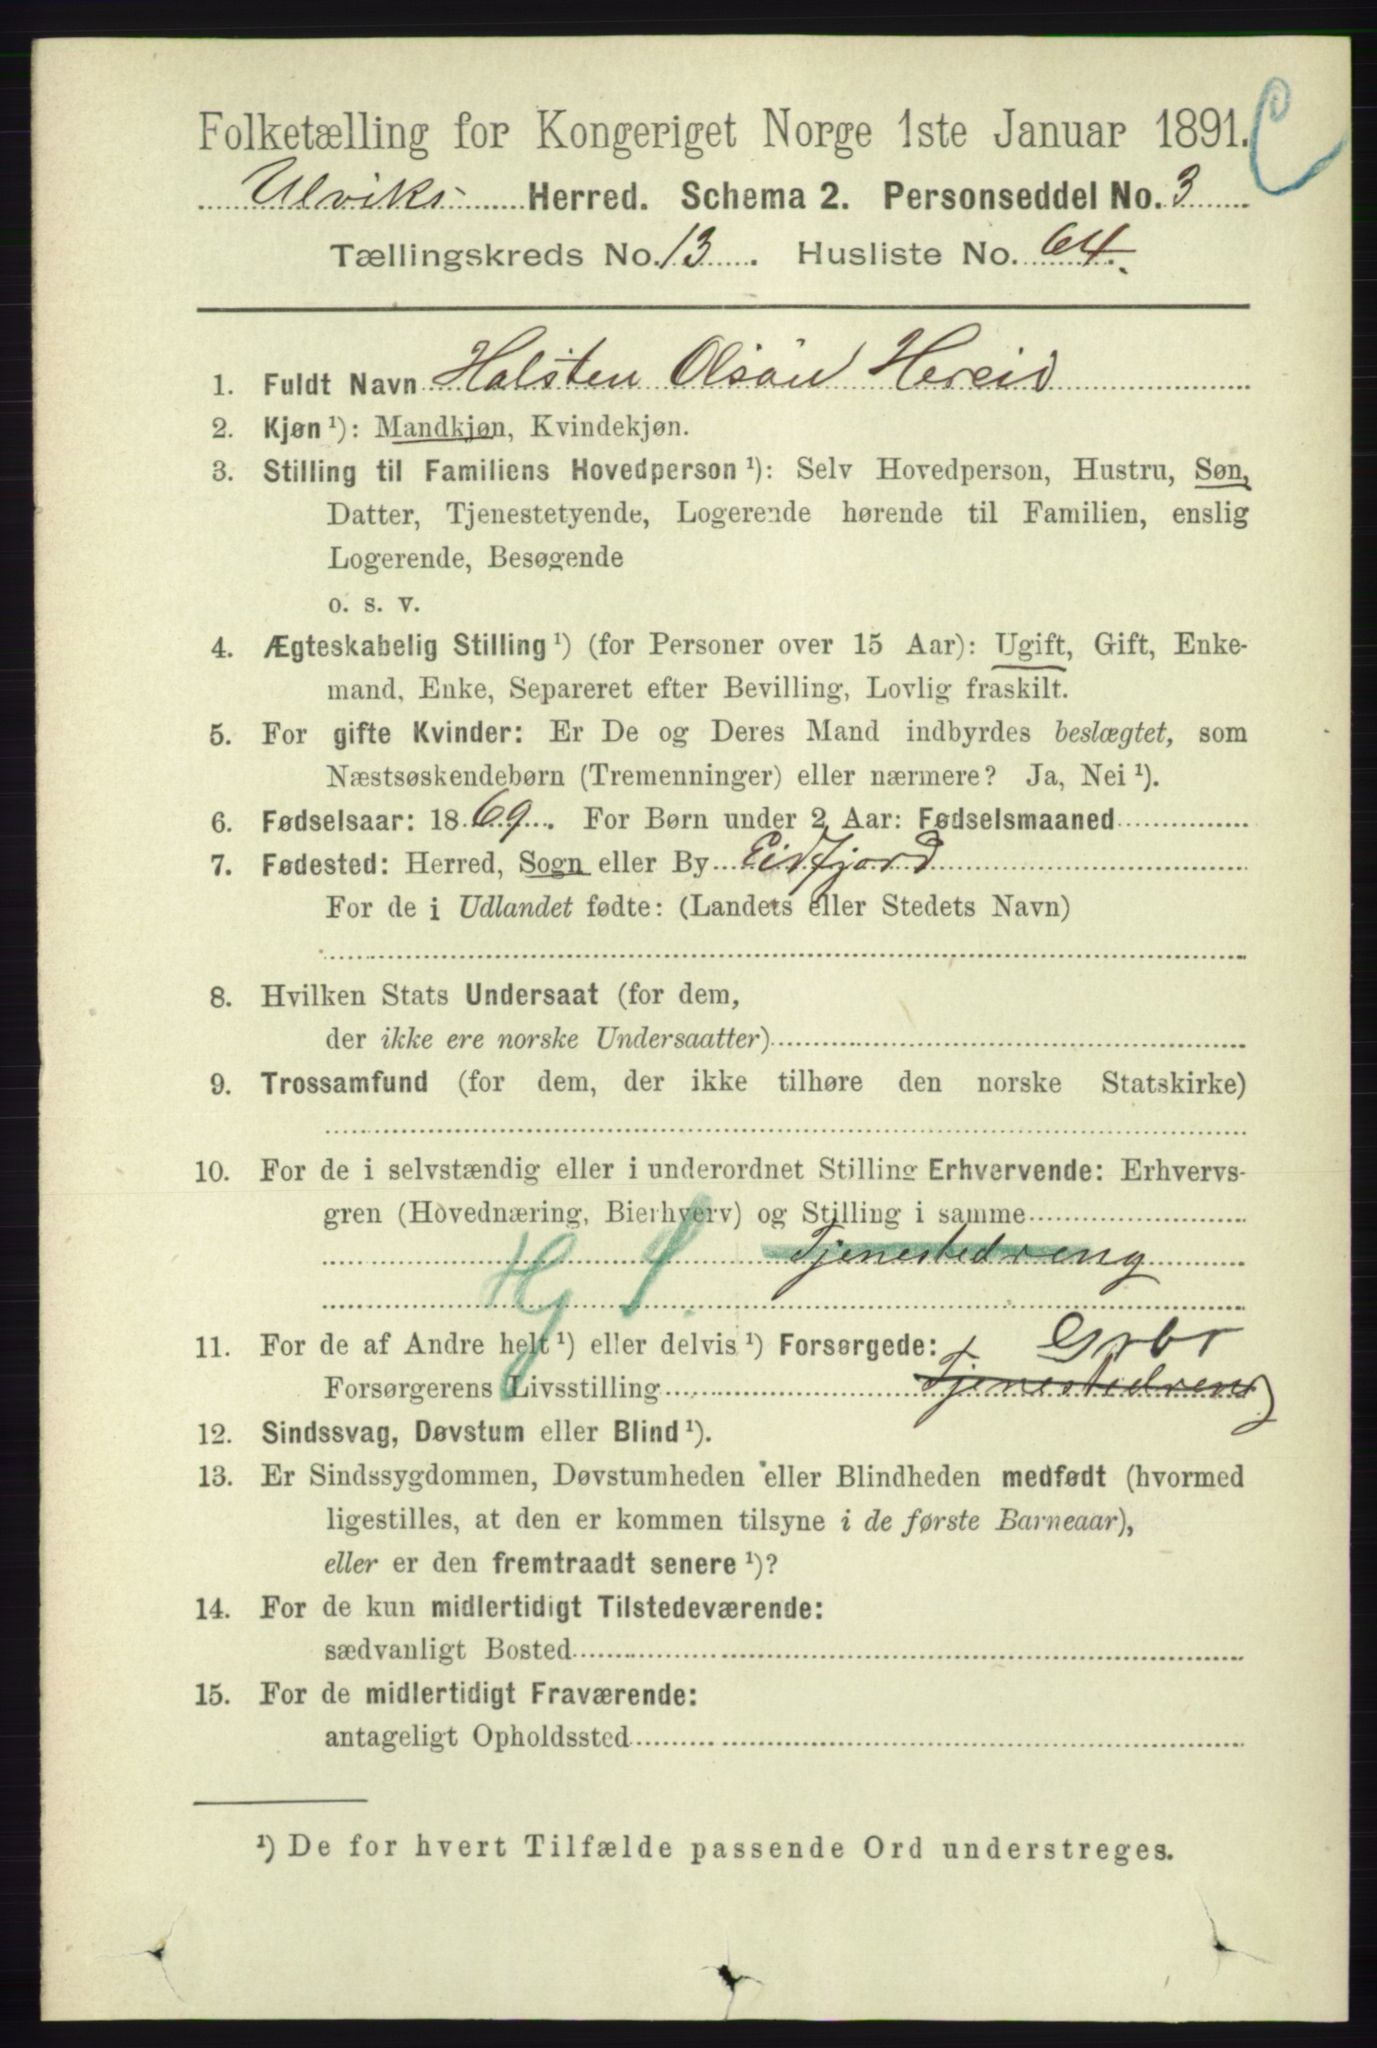 Folketælling for Kongeriget Norge 1ste Januar 1891. C
Ulviks Herred. Schema 2. Personseddel No. 3
Tællingskreds No. 13. Husliste No. 64.
1. Fuldt Navn Halsten Olsön Hereid
2. Kjøn ¹): Mandkjøn, Kvindekjøn.
3. Stilling til Familiens Hovedperson ¹): Selv Hovedperson, Hustru, Søn,
Datter, Tjenestetyende, Logerende hørende til Familien, enslig
Logerende, Besøgende
o. s. v.
4. Ægteskabelig Stilling ¹) (for Personer over 15 Aar): Ugift, Gift, Enke-
mand, Enke, Separeret efter Bevilling, Lovlig fraskilt.
5. For gifte Kvinder: Er De og Deres Mand indbyrdes beslægtet, som
Næstsøskendebørn (Tremenninger) eller nærmere? Ja, Nei ¹).
6. Fødselsaar: 1869. For Børn under 2 Aar: Fødselsmaaned
7. Fødested: Herred, Sogn eller By Eidfjord
For de i Udlandet fødte: (Landets eller Stedets Navn)
8. Hvilken Stats Undersaat (for dem,
der ikke ere norske Undersaatter)
9. Trossamfund (for dem, der ikke tilhøre den norske Statskirke)
10. For de i selvstændig eller i underordnet Stilling Erhvervende: Erhvervs-
gren (Hovednæring, Bierhverv) og Stilling i samme
Tjenestedreng
11. For de af Andre helt ¹) eller delvis ¹) Forsørgede: Grbr
Forsørgerens Livsstilling Tjenestedreng
12. Sindssvag, Døvstum eller Blind ¹).
13. Er Sindssygdommen, Døvstumheden eller Blindheden medfødt (hvormed
ligestilles, at den er kommen tilsyne i de første Barneaar),
eller er den fremtraadt senere ¹)?
14. For de kun midlertidigt Tilstedeværende:
sædvanligt Bosted
15. For de midlertidigt Fraværende:
antageligt Opholdssted
¹) De for hvert Tilfælde passende Ord understreges.